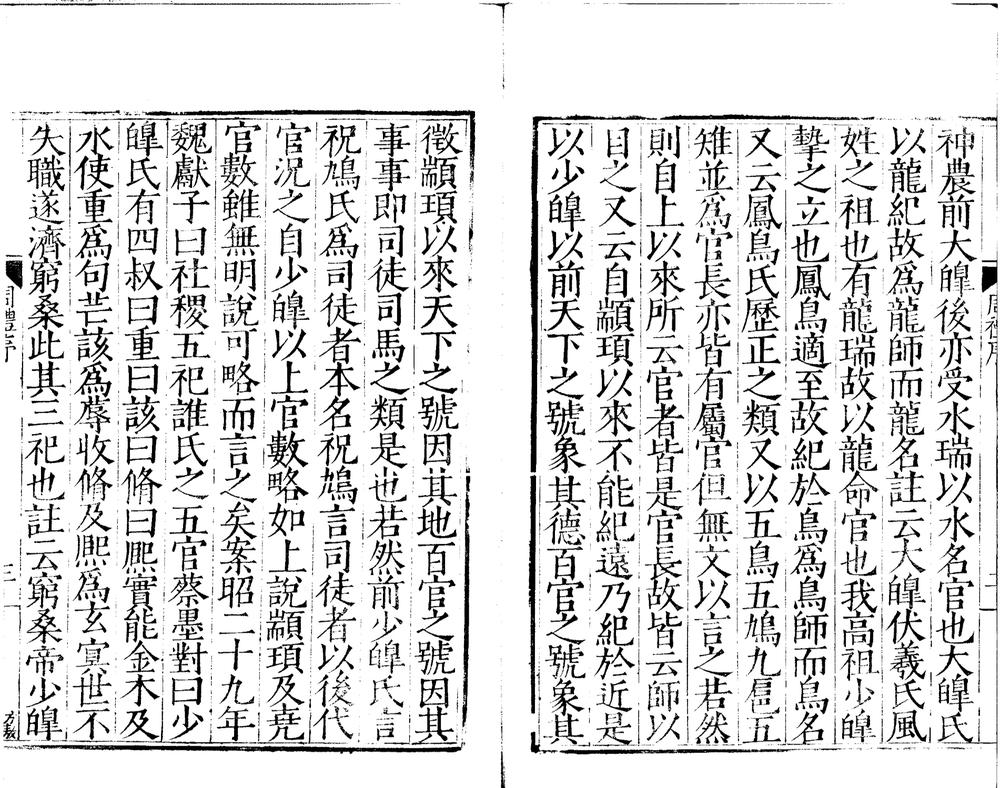 神農前大皥後亦受水瑞以水名官也大皥氏
以龍紀故爲龍師而龍名註云大皥伏羲氏風
姓之祖也有龍瑞故以龍命官也我高祖少皥
摯之立也鳳鳥適至故紀於鳥爲鳥師而鳥名
又云鳳鳥氏歷正之類又以五鳥五鳩九扈五
雉並爲官長亦皆有屬官但無文以言之若然
則自上以來所云官者皆是官長故皆云師以
目之又云自顓頊以來不能紀遠乃紀於近是
以少皥以前天下之號象其德百官之號象其
徵顓頊以來天下之號因其地百官之號因其
事事即司徒司馬之類是也若然前少皥氏言
祝鳩氏爲司徒者本名祝鳩言司徒者以後代
官況之自少皥以上官數略如上說顓頊及堯
官數雖無明說可略而言之矣案昭二十九年
魏獻子曰社稷五祀誰氏之五官蔡墨對曰少
皥氏有四叔曰重曰該曰脩曰熈實能金木及
水使重爲句芒該爲蓐收脩及熈爲玄冥世不
失職遂濟窮桑此其三祀也註云窮桑帝少皥
周禮序
三